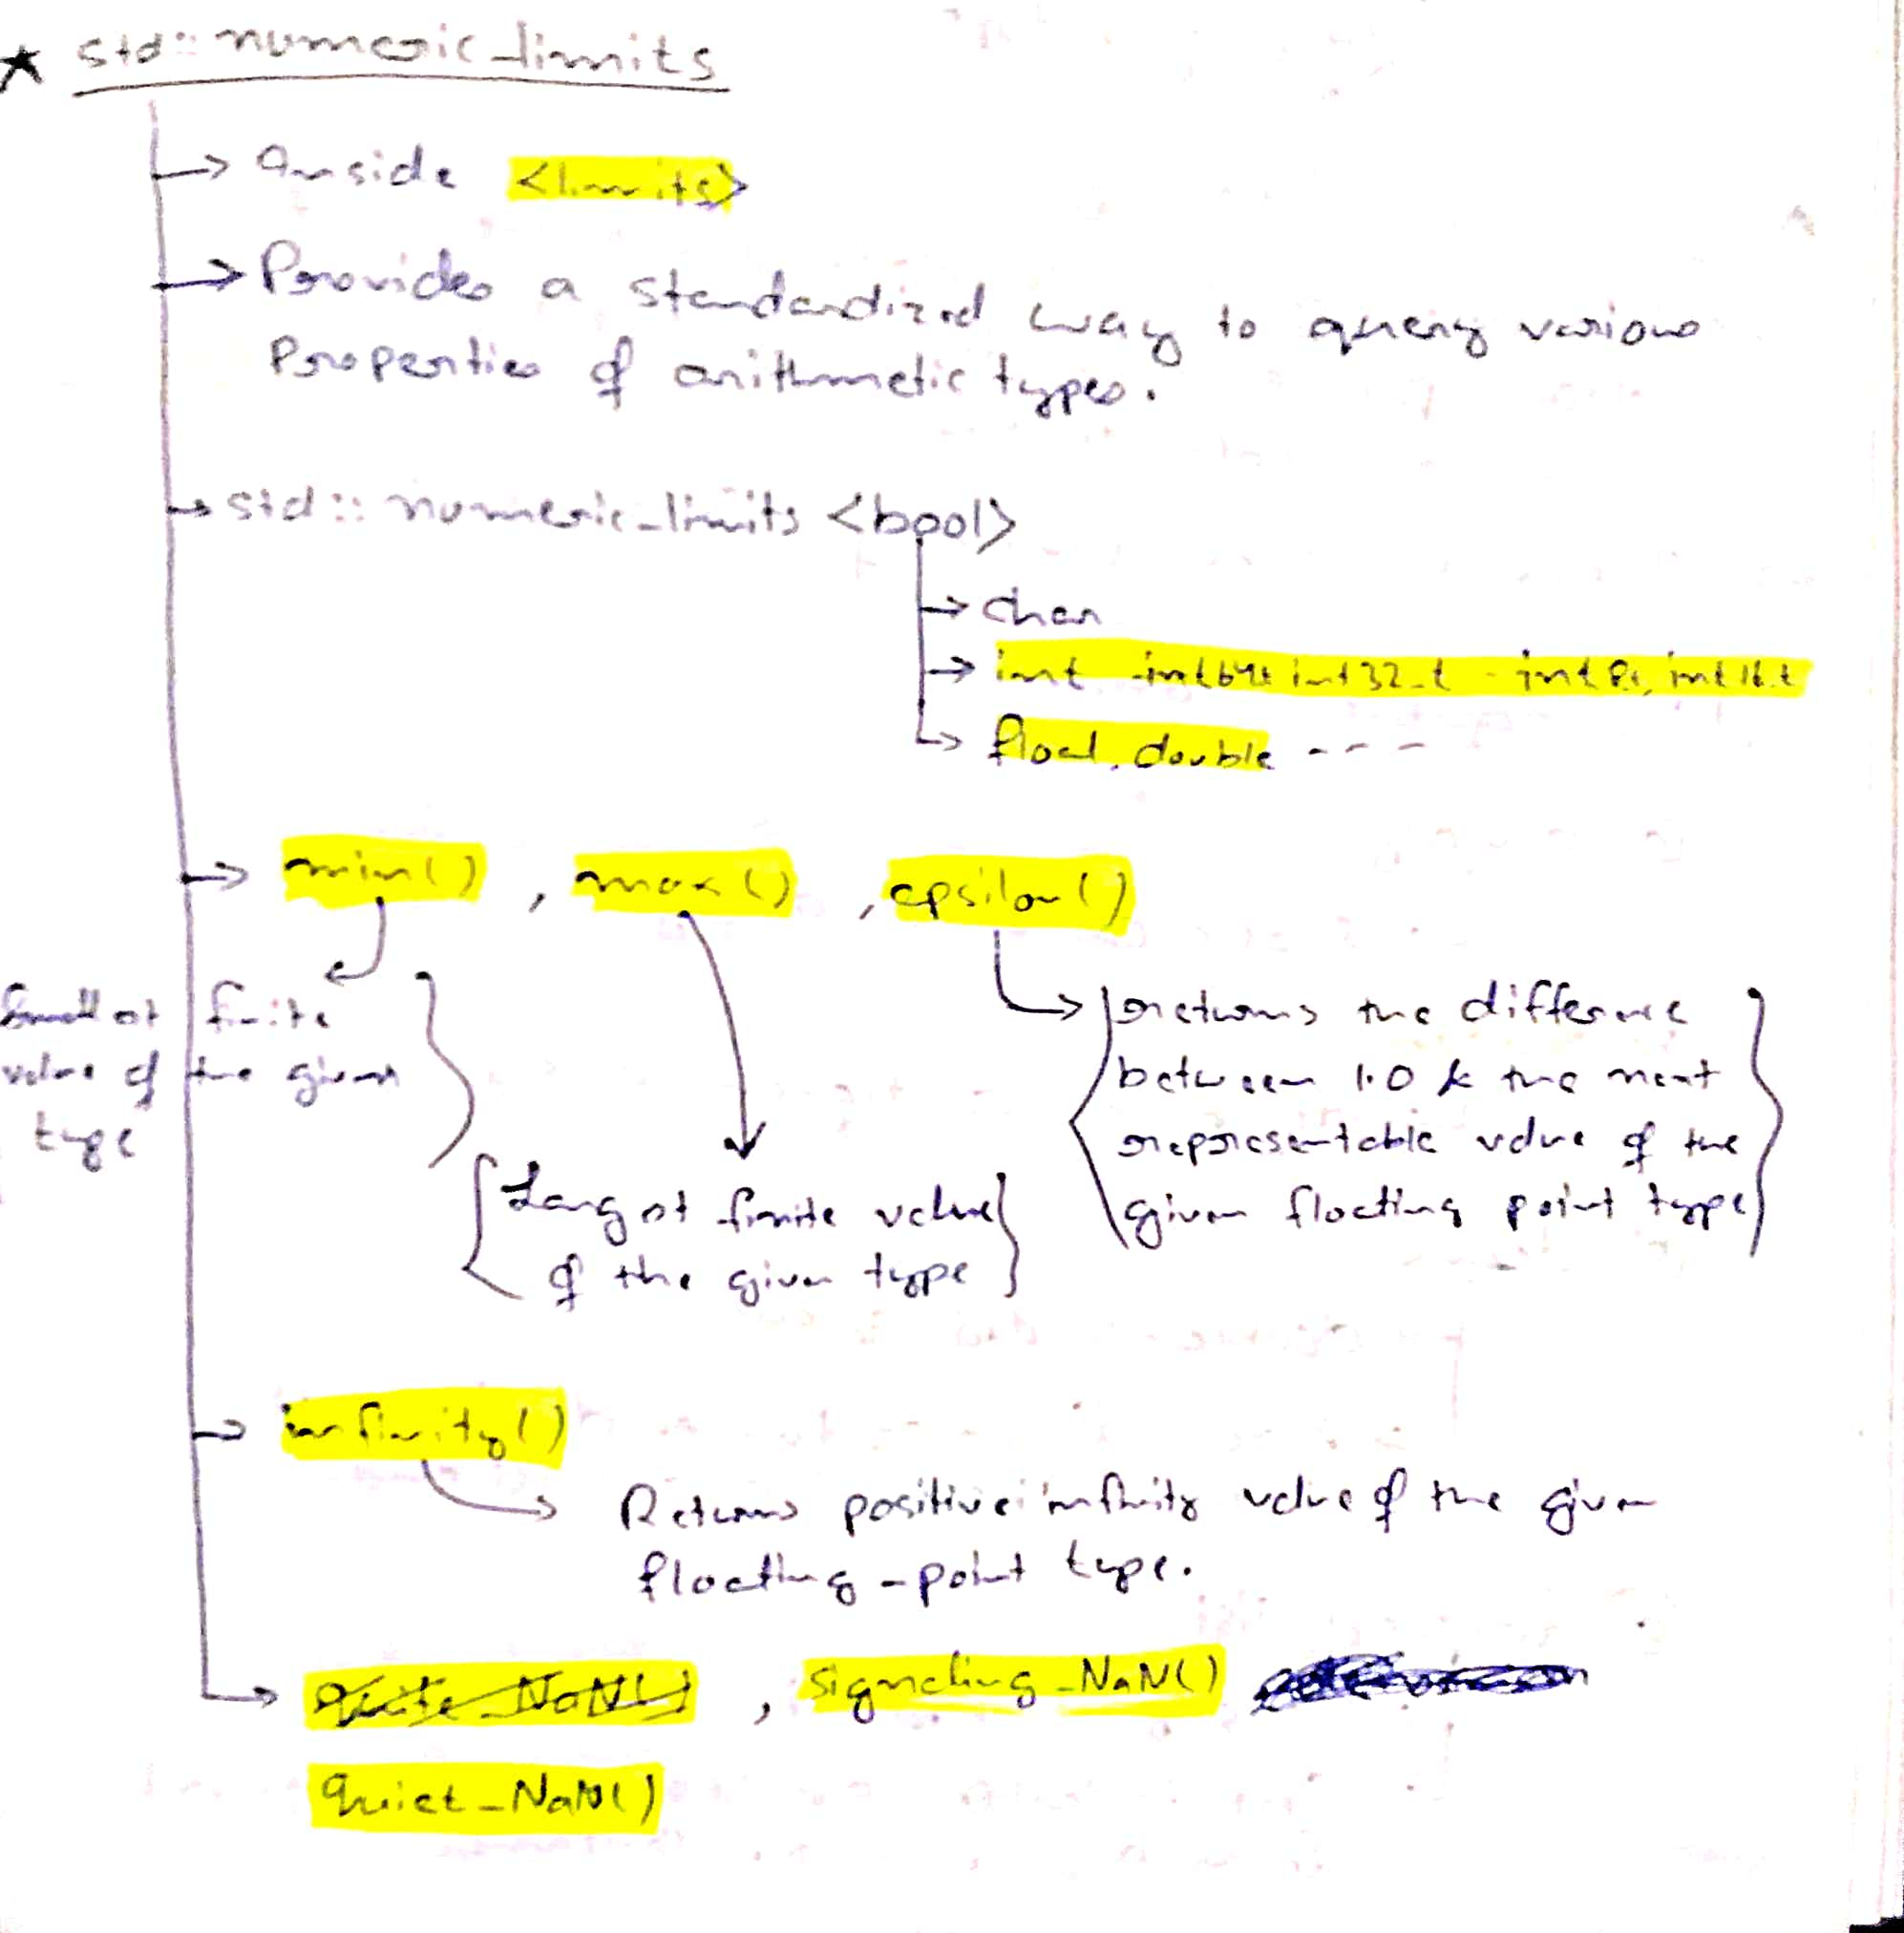 ★ std::numeric_limits
→ Inside <limits>
→ Provides a standardized way to query various
Properties of arithmetic types.
→ std::numeric_limits <bool>
→ char
→ int int64t int32_t - int8t, int16_t
→ float, double - - -
→ min() , max() , epsilon()
Smallest finite
value of the given
type
Largest finite value
of the given type
returns the difference
between 1.0 & the next
representable value of the
given floating point type
→ infinity()
→ Returns positive infinity value of the given
floating-point type.
→ Quite_NaN() , signaling_NaN()
Quiet_NaN()